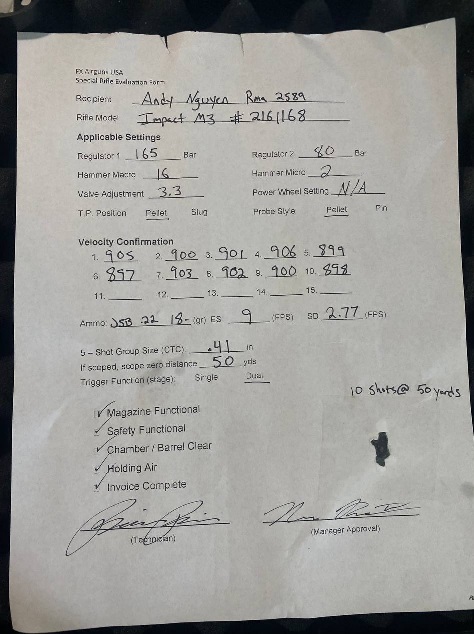 FX Airguns USA
Special Rifle Evaluation Form
Recipient Andy Nguyen Rma 2589
Rifle Model Impact M3 # 216168
Applicable Settings
Regulator 1 165 Bar Regulator 2 80 Bar
Hammer Macro 16 Hammer Micro 2
Valve Adjustment 3.3 Power Wheel Setting N/A
T.P. Position Pellet Slug Probe Style Pellet Pin
Velocity Confirmation
1. 905 2. 900 3. 901 4. 906 5. 899
6. 897 7. 903 8. 902 9. 900 10. 898
11. 12. 13. 14. 15.
Ammo JSB .22 18- (gr) ES 9 (FPS) SD 2.77 (FPS)
5 – Shot Group Size (CTC) .41 in
If scoped, scope zero distance 50 yds
Trigger Function (stage): Single Dual
10 Shots @ 50 yards
✓ Magazine Functional
✓ Safety Functional
✓ Chamber / Barrel Clear
✓ Holding Air
✓ Invoice Complete
(Technician) (Manager Approval)